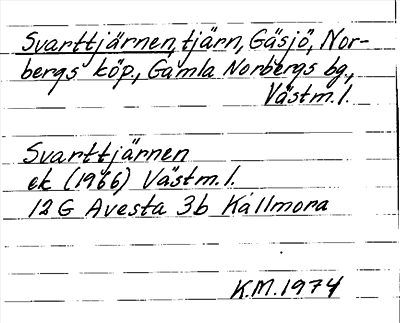 Svarttjärnen, tjärn, Gäsjö, Nor-
bergs köp., Gamla Norbergs bg.,
Västm. l.
Svarttjärnen
ek (1966) Västm. l.
12 G Avesta 3b Kallmora
K.M. 1974